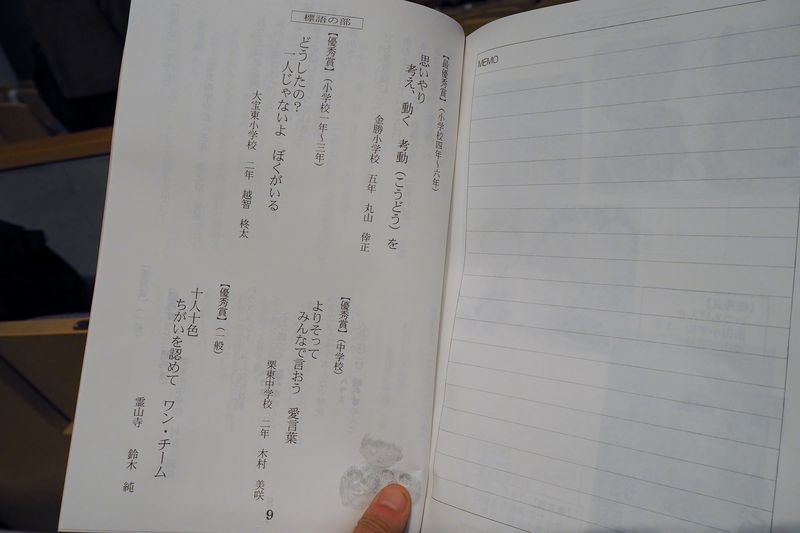 標語の部
【最優秀賞】(小学校四年～六年)
思いやり
考え、動く　考動(こうどう)を
金勝小学校　五年　丸山　倖正
【優秀賞】(小学校一年～三年)
どうしたの?
一人じゃないよ　ぼくがいる
大宝東小学校　二年　越智　柊太
【優秀賞】(中学校)
よりそって
みんなで言おう　愛言葉
栗東中学校　二年　木村　美咲
【優秀賞】(一般)
十人十色
ちがいを認めて　ワン・チーム
霊山寺　鈴木　純
9
MEMO